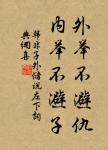 外举不避仇
内举不避子
韩非子外储说左下词
典调喜